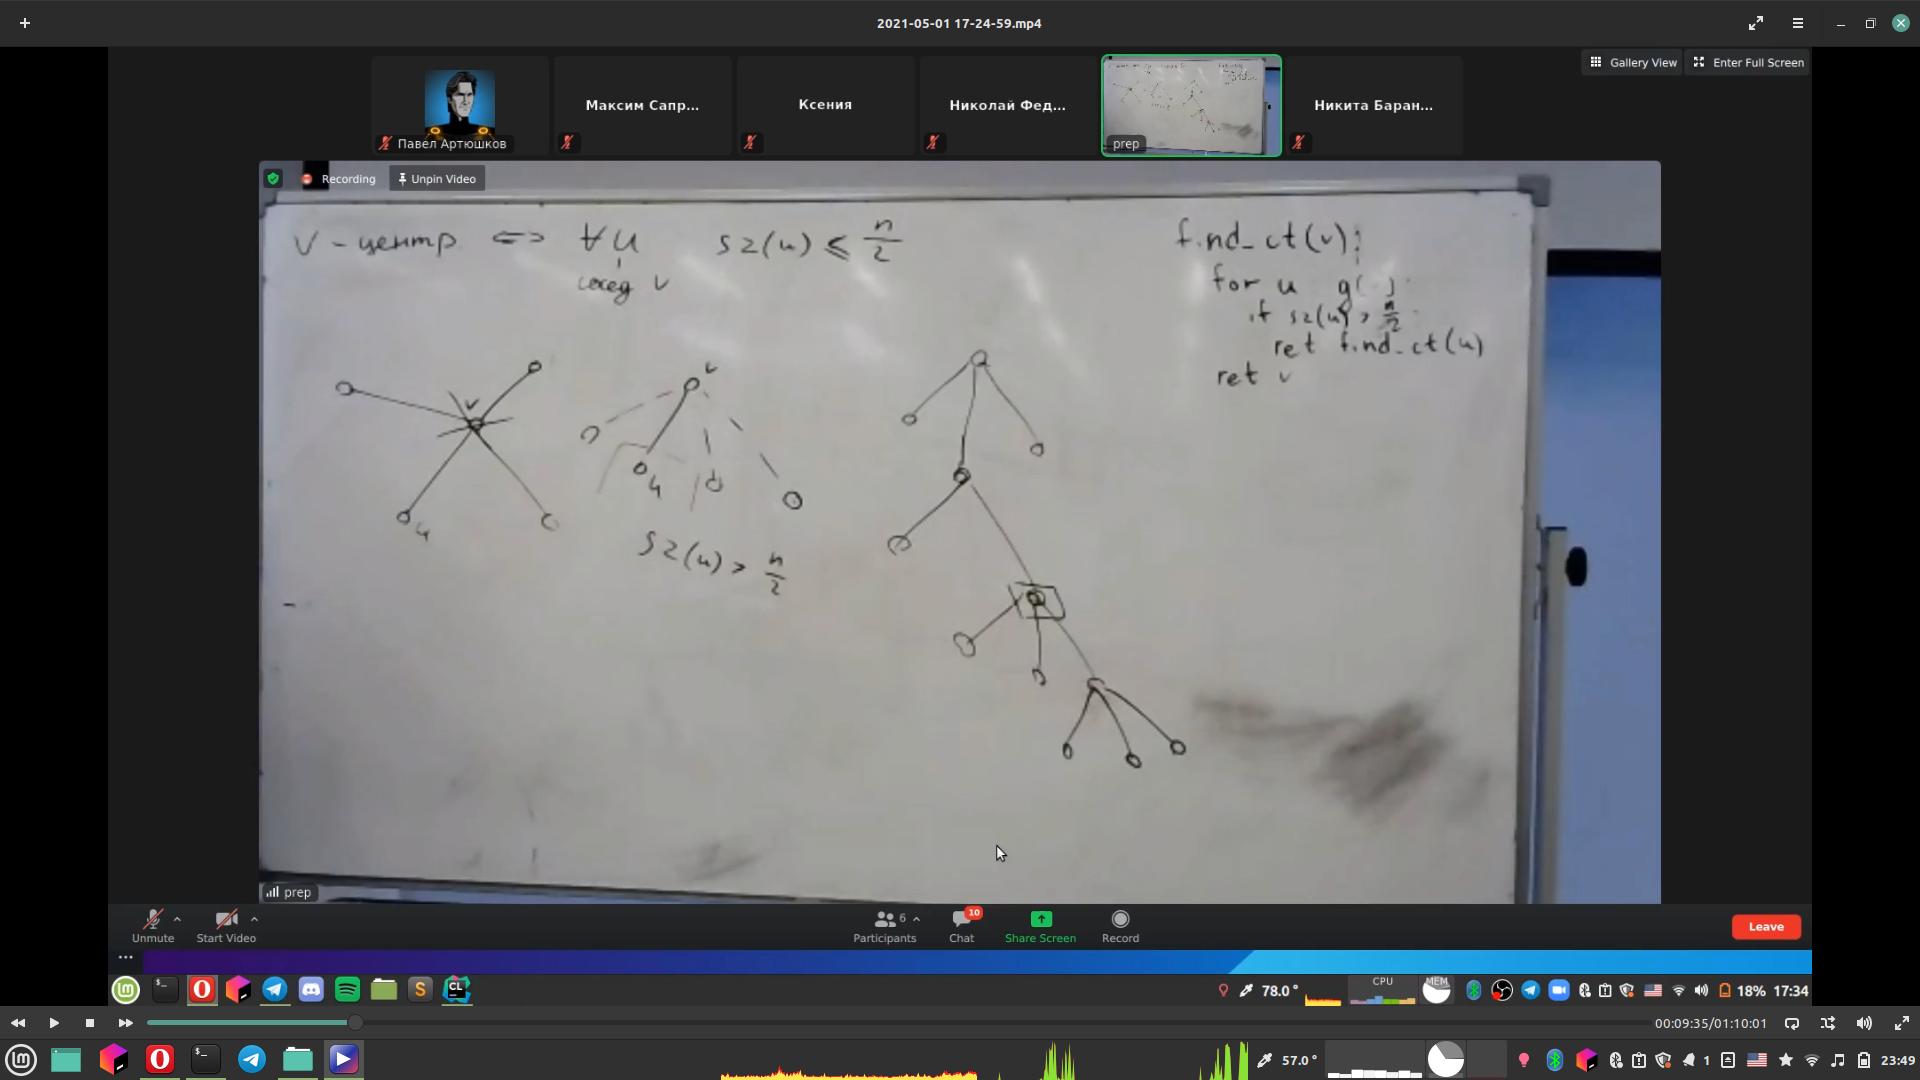 2021-05-01 17-24-59.mp4
Gallery View
Enter Full Screen
Павел Артюшков
Максим Сапр...
Ксения
Николай Фед...
prep
Никита Баран...
Recording
Unpin Video
v - центр <=> ∀ u sz(u) ≤ n/2
сосед v
find_ct(v):
for u
if sz(u) > n/2
ret find_ct(u)
ret v
v
u
v
u
sz(u) > n/2
prep
Unmute
Start Video
Participants
6
Chat
10
Share Screen
Record
Leave
78.0 °
CPU
MEM
18%
17:34
00:09:35/01:10:01
57.0 °
1
23:49